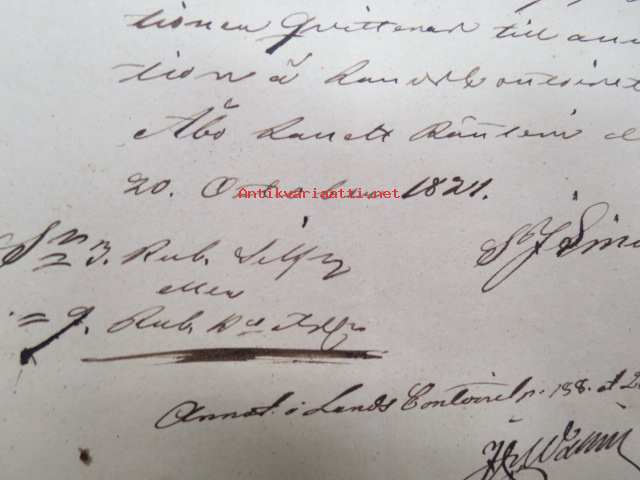 tionen quitteras till ann
tion å Lands Contoiret
Åbo Landt Ränteri d
20. October 1821.
Antikvariaatti.net
3. Rub. Silfr
eller
= 9. Rub. Bco Ass
Annot. i Lands Contoiret p. 158. et 2